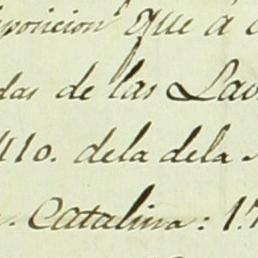 posicion que à
das de las Lav
110. dela dela
Catalina: 1.